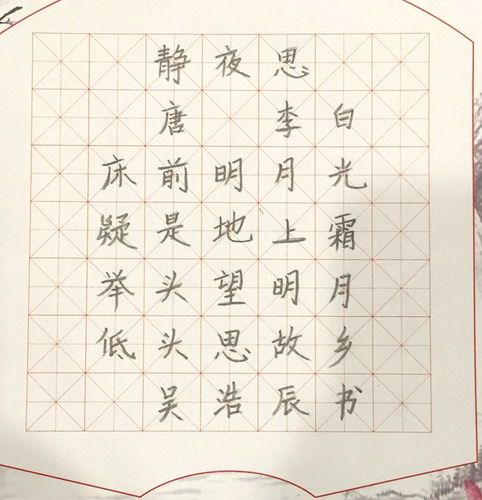 静夜思
唐 李白
床前明月光
疑是地上霜
举头望明月
低头思故乡
吴浩辰书